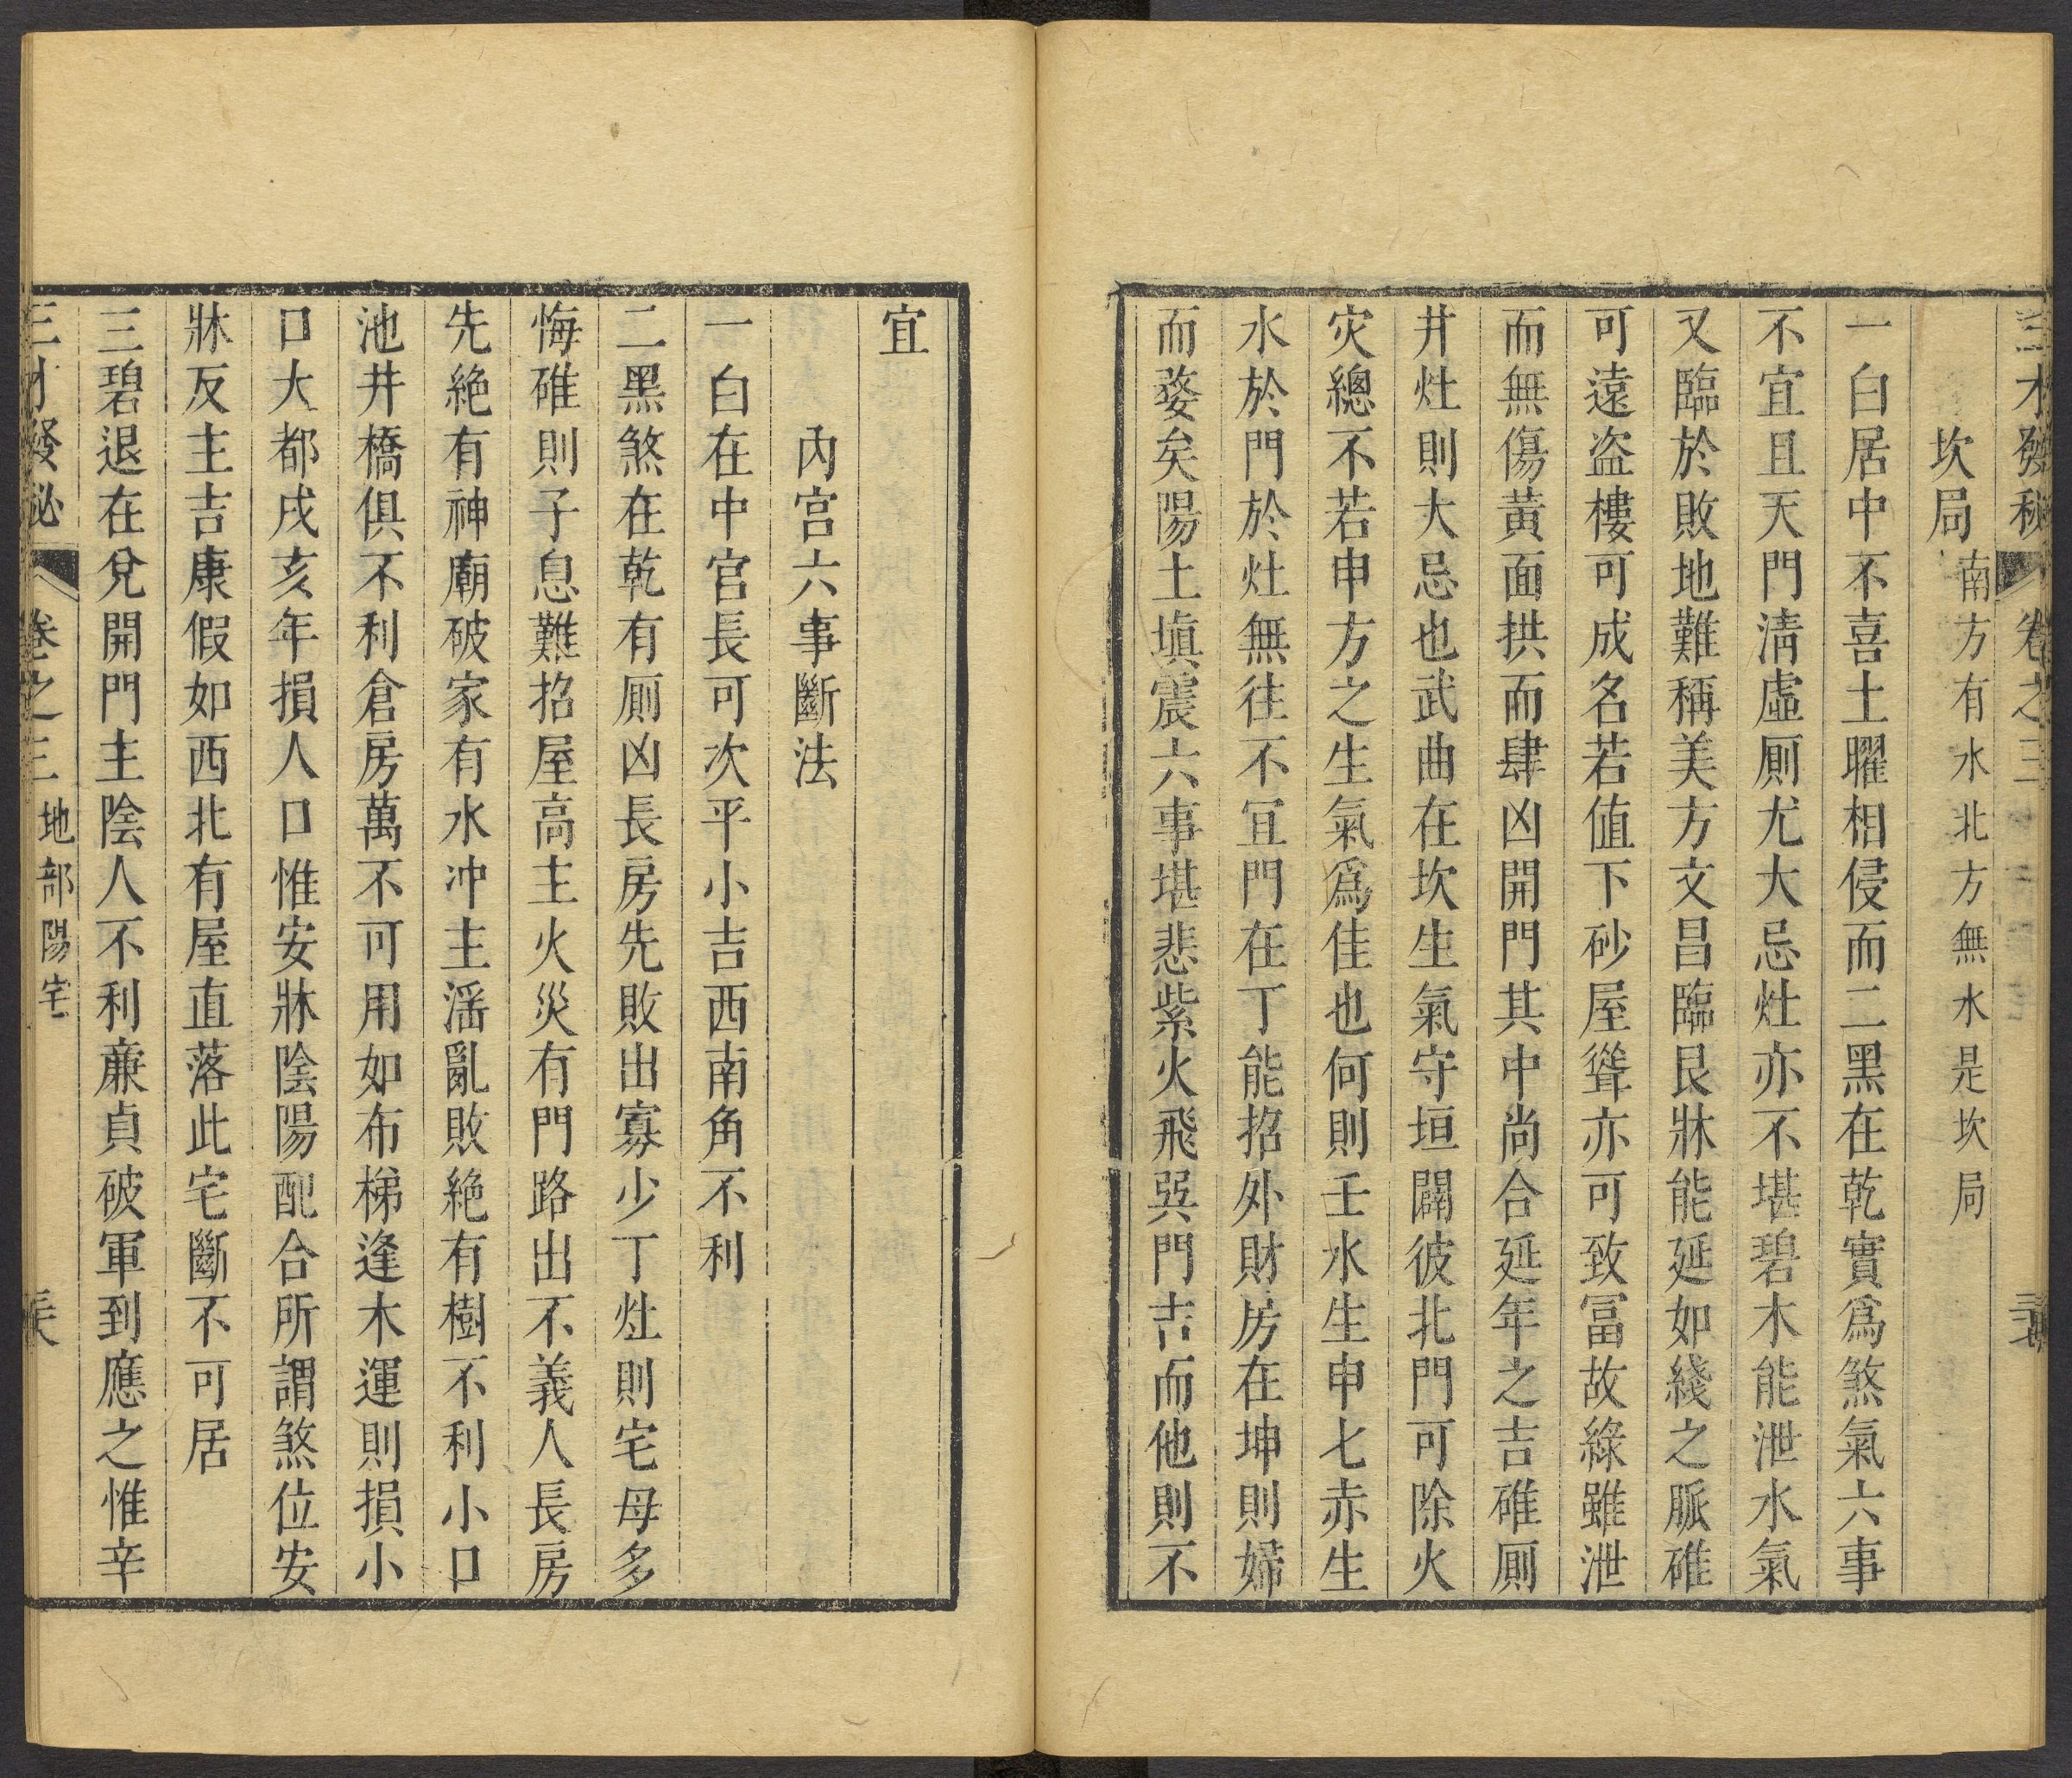 三才發秘 卷之三
坎局 南方有水北方無水是坎局
一白居中不喜土曜相侵而二黑在乾實爲煞氣六事
不宜且天門淸虛厠尤大忌灶亦不堪碧木能泄水氣
又臨於敗地難稱美方文昌臨艮牀能延如綫之脈碓
可遠盜樓可成名若値下砂屋聳亦可致冨故綠雖泄
而無傷黃面拱而肆凶開門其中尚合延年之吉碓厠
井灶則大忌也武曲在坎生氣守垣闢彼北門可除火
灾總不若申方之生氣爲佳也何則壬水生申七赤生
水於門於灶無往不宜門在丁能招外財房在坤則婦
而婺矣陽土塡震六事堪悲紫火飛巽門吉而他則不
宜
內宮六事斷法
一白在中宮長可次平小吉西南角不利
二黑煞在乾有厠凶長房先敗出寡少丁灶則宅母多
悔碓則子息難招屋高主火災有門路出不義人長房
先絶有神廟破家有水冲主滛亂敗絶有樹不利小口
池井橋俱不利倉房萬不可用如布梯逢木運則損小
口大都戌亥年損人口惟安牀陰陽配合所謂煞位安
牀反主吉康假如西北有屋直落此宅斷不可居
三碧退在兌開門主陰人不利亷貞破軍到應之惟辛
三才發秘 卷之三 地部陽宅